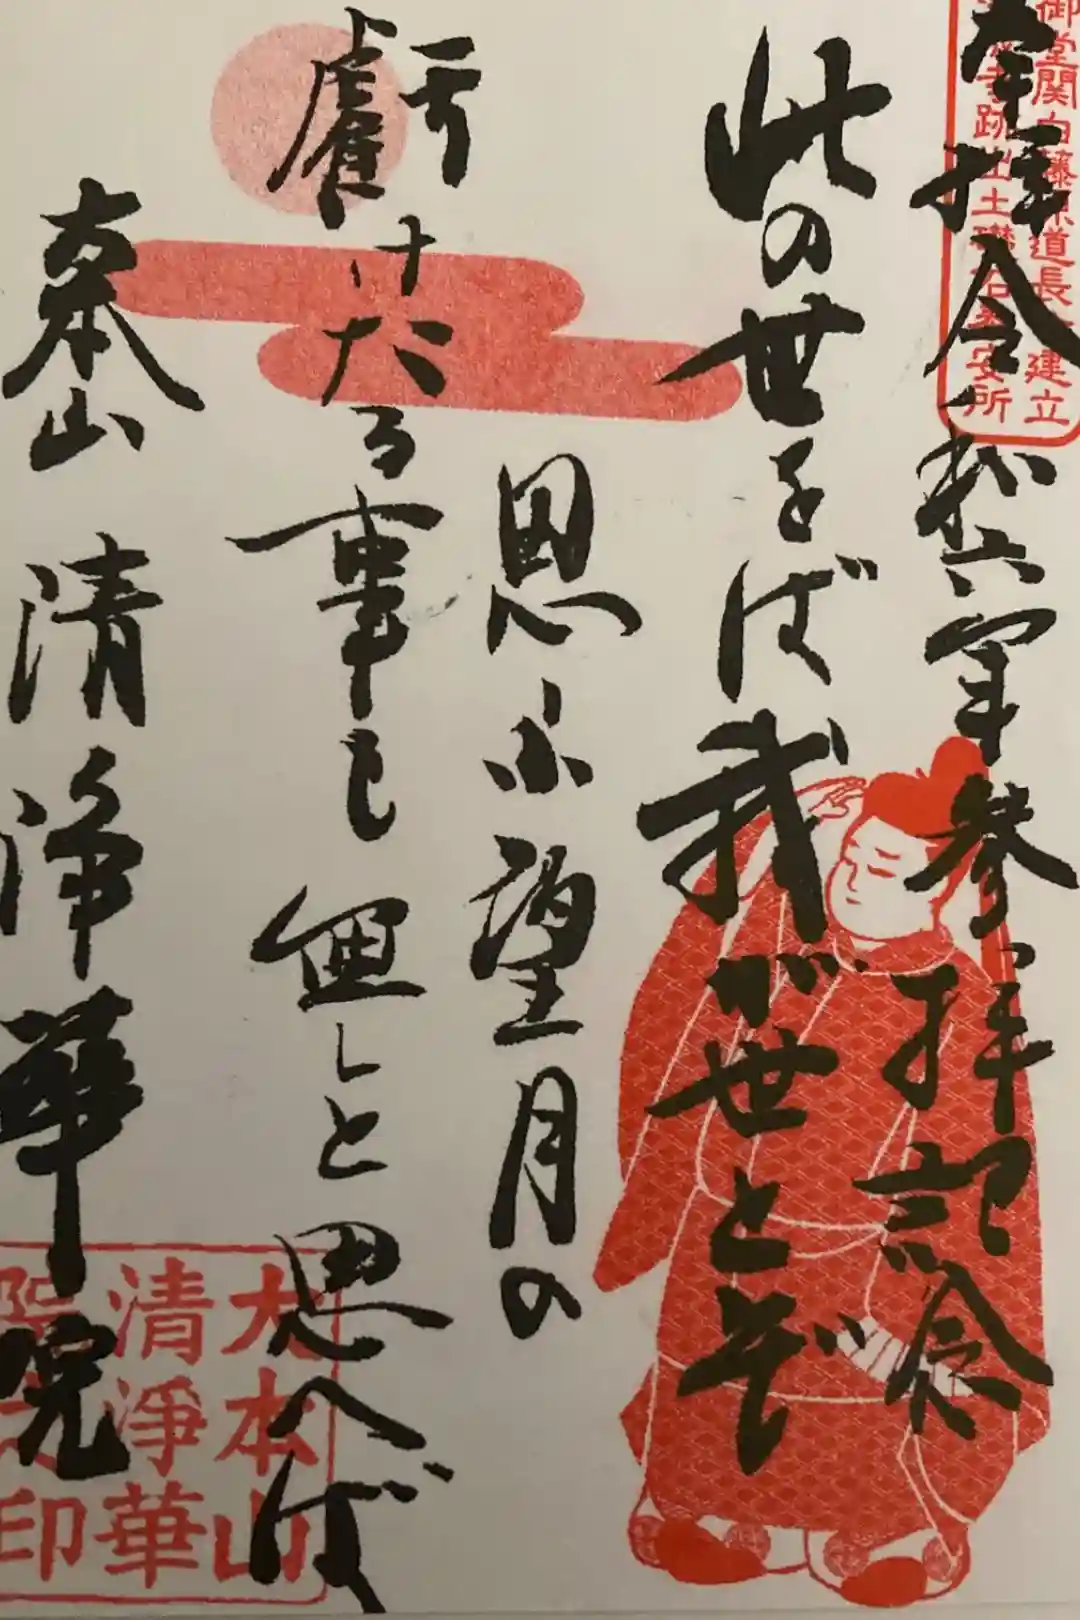 御堂関白藤原道長 建立
跡出土礎石 安所
奉拝 令和六年 参拝記念
此の世をば我が世とぞ
思ふ望月の
虧けたる事も無しと思へば
大本山 清浄華院
大本山
清淨華
院之印